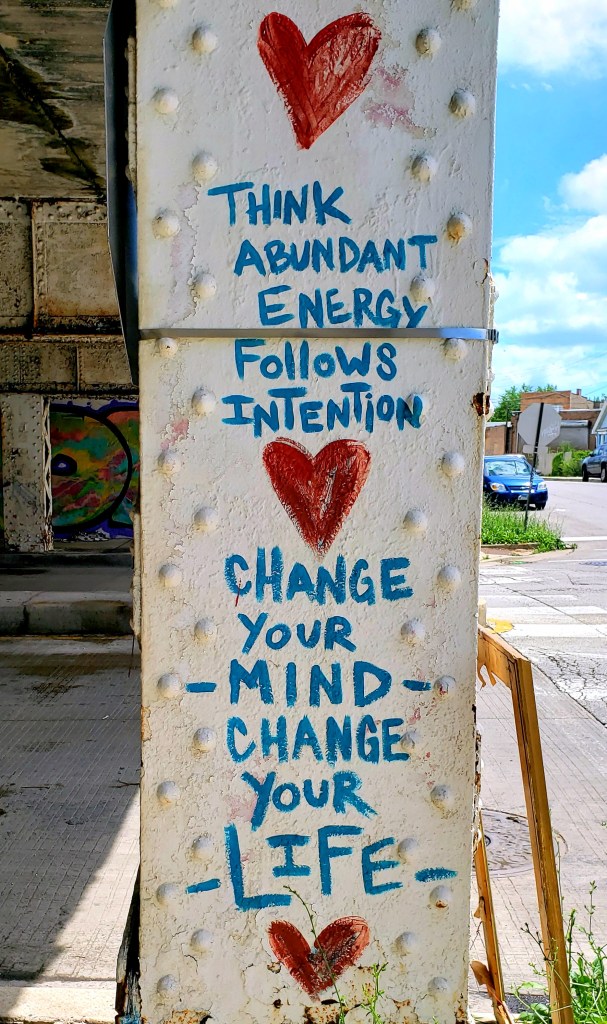 THINK
ABUNDANT
ENERGY
FOLLOWS
INTENTION
CHANGE
YOUR
-MIND-
CHANGE
YOUR
-LIFE-